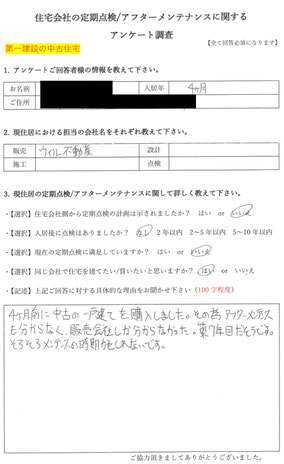 住宅会社の定期点検/アフターメンテナンスに関する
アンケート調査
【全て回答必須になります】
第一建設の中古住宅
1. アンケートご回答者様の情報を教えて下さい。
お名前 入居年 4ヶ月
ご住所
2. 現住居における担当の会社名をそれぞれ教えて下さい。
販売 ウィル不動産 設計
施工 点検
3. 現住居の定期点検/アフターメンテナンスに関して詳しく教えて下さい。
・【選択】住宅会社側から定期点検の計画は示されましたか? はい or いいえ
・【選択】入居後に点検はありましたか? なし 2年以内 2～5年以内 5～10年以内
・【選択】現在の定期点検に満足していますか? はい or いいえ
・【選択】同じ会社で住宅を建てたい/買いたいと思いますか? はい or いいえ
・【記述】上記ご回答に対する具体的な理由をお聞かせ下さい(100字程度)
4ヶ月前に中古の一戸建てを購入しました。その為アフターメンテナンス
も分からなく、販売会社しか分からなかった。築7年目だそうです。
そろそろメンテナンスの時期かもしれないです。
ご協力頂きましてありがとうございました。